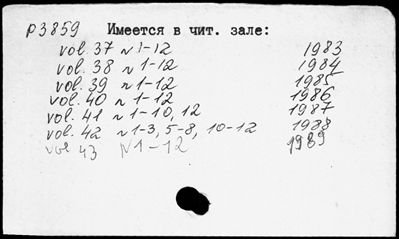 р3859 Имеется в чит. зале:
vol. 37 n 1-12 1983
vol. 38 n 1-12 1984
vol. 39 n 1-12 1985
vol. 40 n 1-12 1986
vol. 41 n 1-10, 12 1987
vol. 42 n 1-3, 5-8, 10-12 1988
vol 43 N 1-12 1989